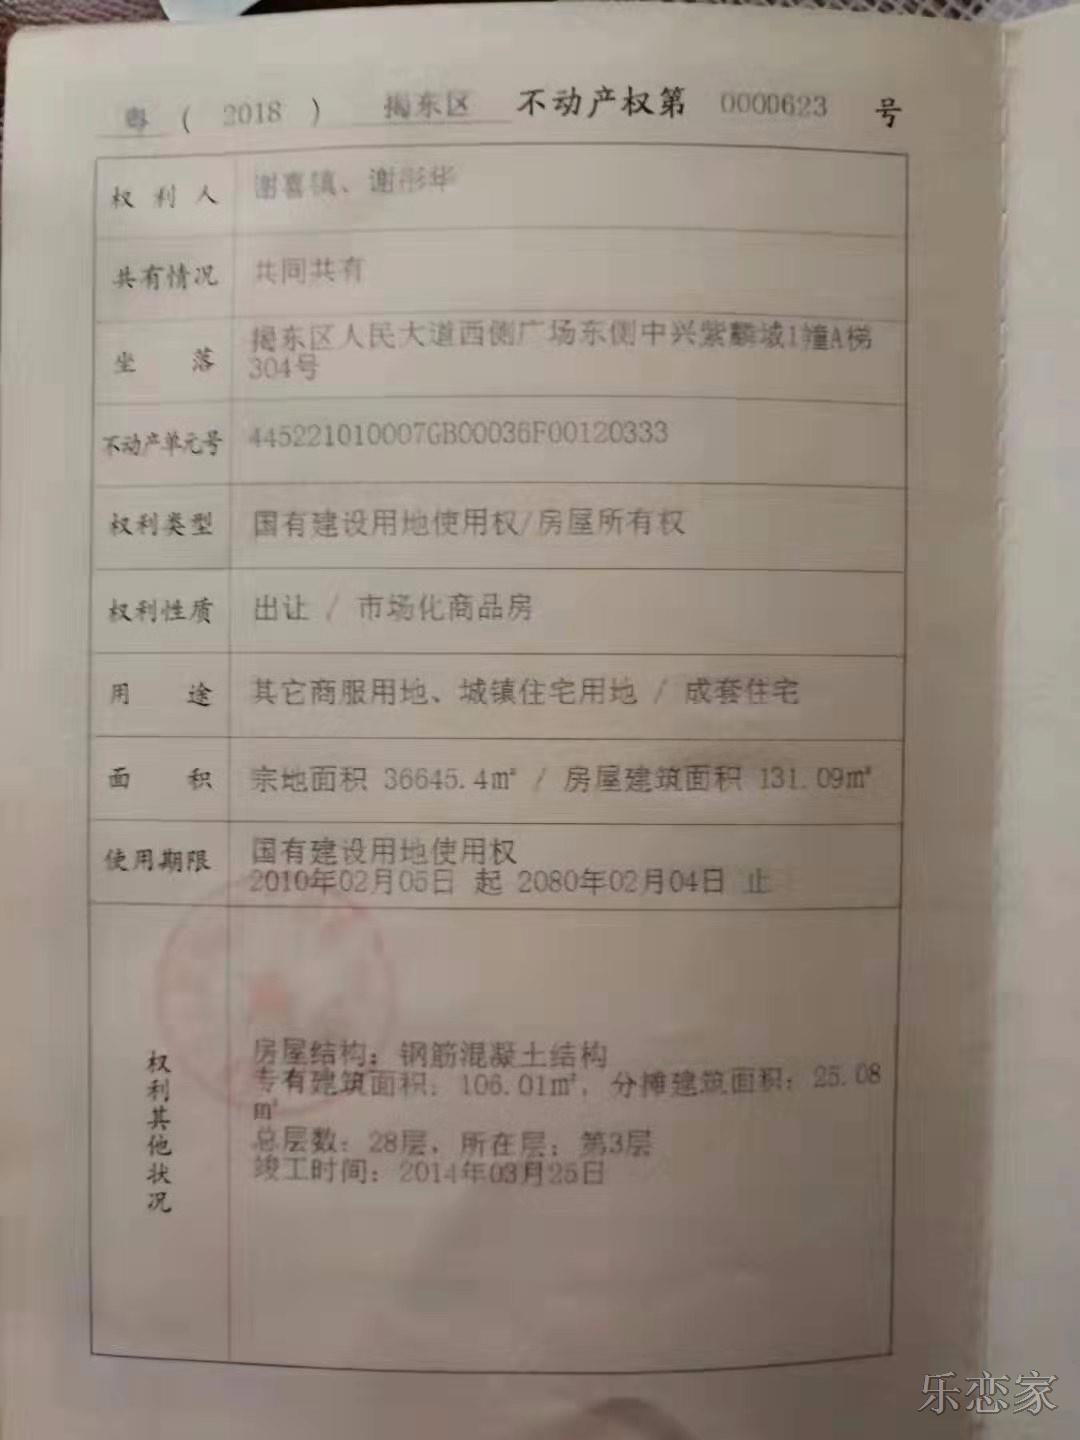 粤 ( 2018 ) 揭东区 不动产权第 0000623 号
权利人 谢喜镇、谢彤华
共有情况 共同共有
坐落 揭东区人民大道西侧广场东侧中兴紫麟城1幢A梯
304号
不动产单元号 445221010007GB00036F00120333
权利类型 国有建设用地使用权/房屋所有权
权利性质 出让 / 市场化商品房
用途 其它商服用地、城镇住宅用地 / 成套住宅
面积 宗地面积 36645.4㎡ / 房屋建筑面积 131.09㎡
使用期限 国有建设用地使用权
2010年02月05日 起 2080年02月04日 止
权利其他状况
房屋结构：钢筋混凝土结构
专有建筑面积：106.01㎡，分摊建筑面积：25.08
㎡
总层数：28层，所在层：第3层
竣工时间：2014年03月25日
乐恋家